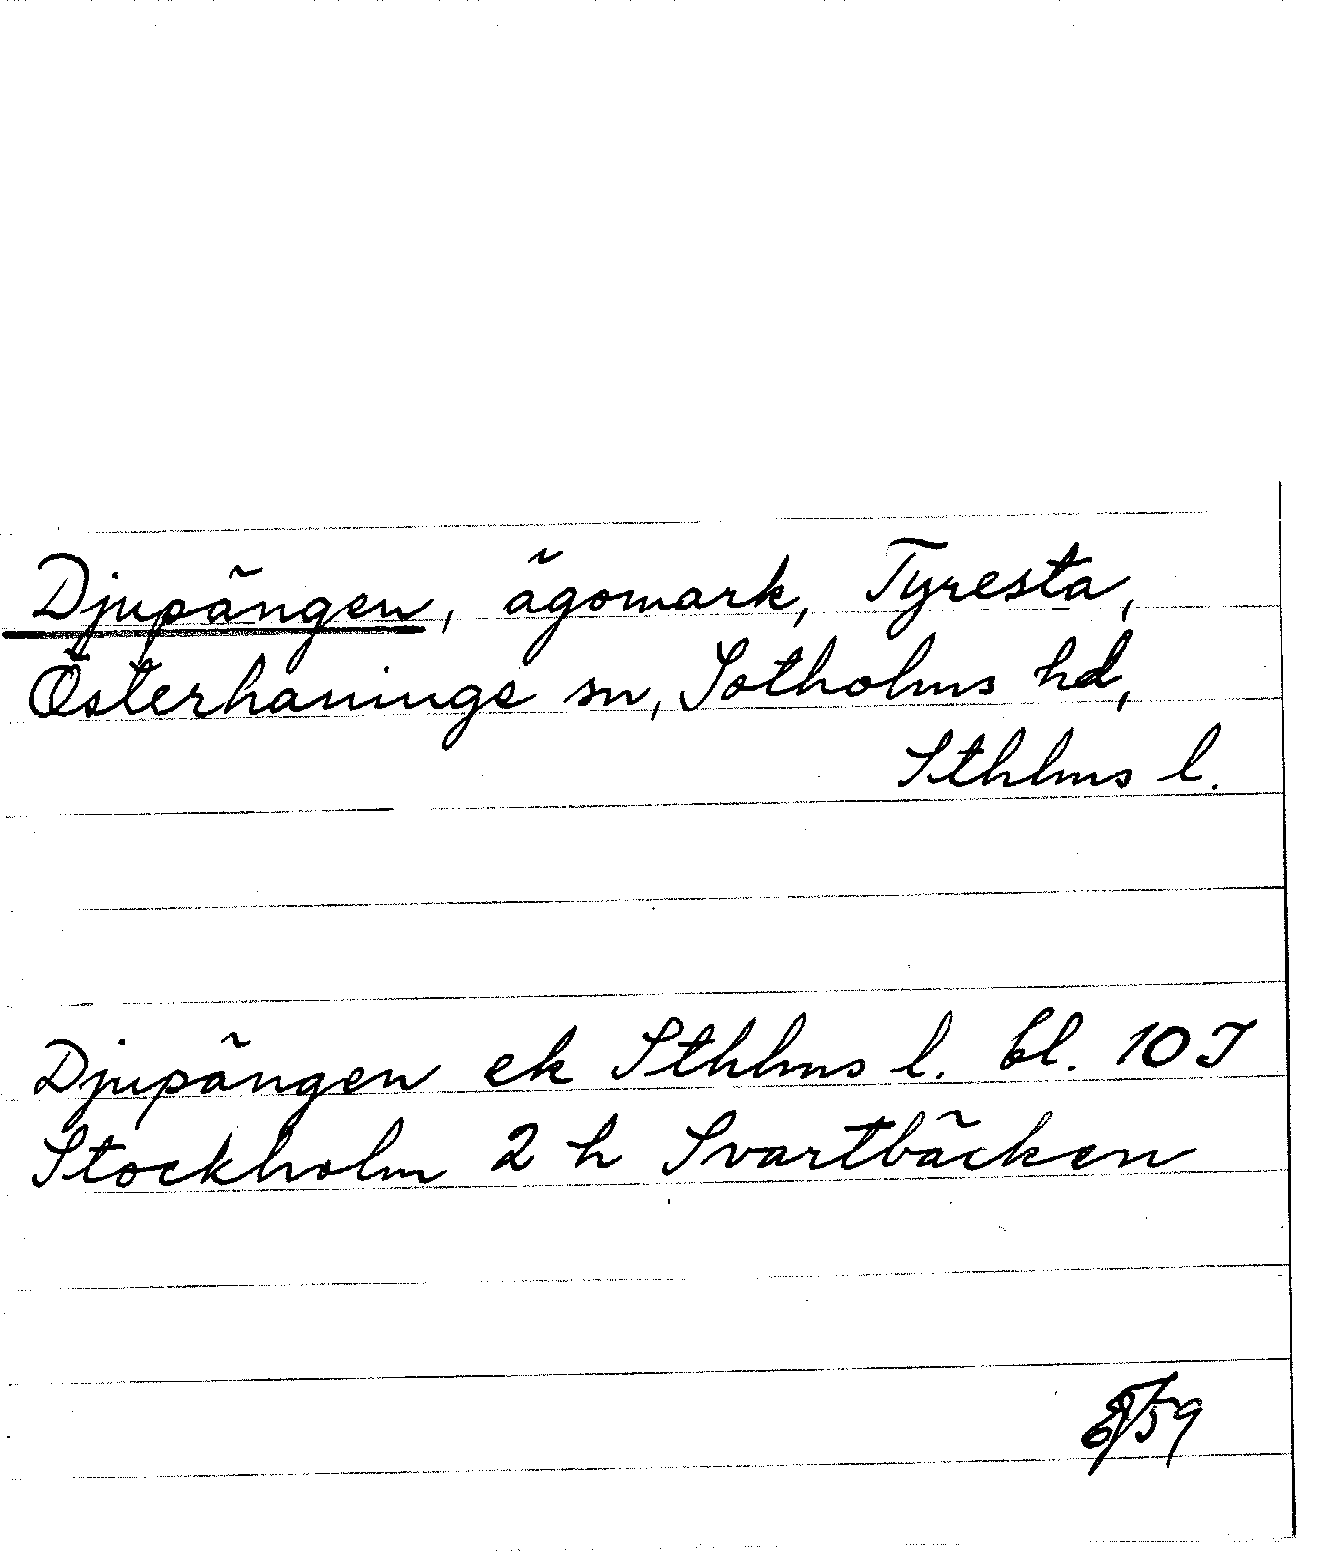 Djupängen, ägomark, Tyresta,
Österhaninge sn, Sotholms hd,
Sthlms l.
Djupängen ek Sthlms l. bl. 10 I
Stockholm 2 h Svartbäcken